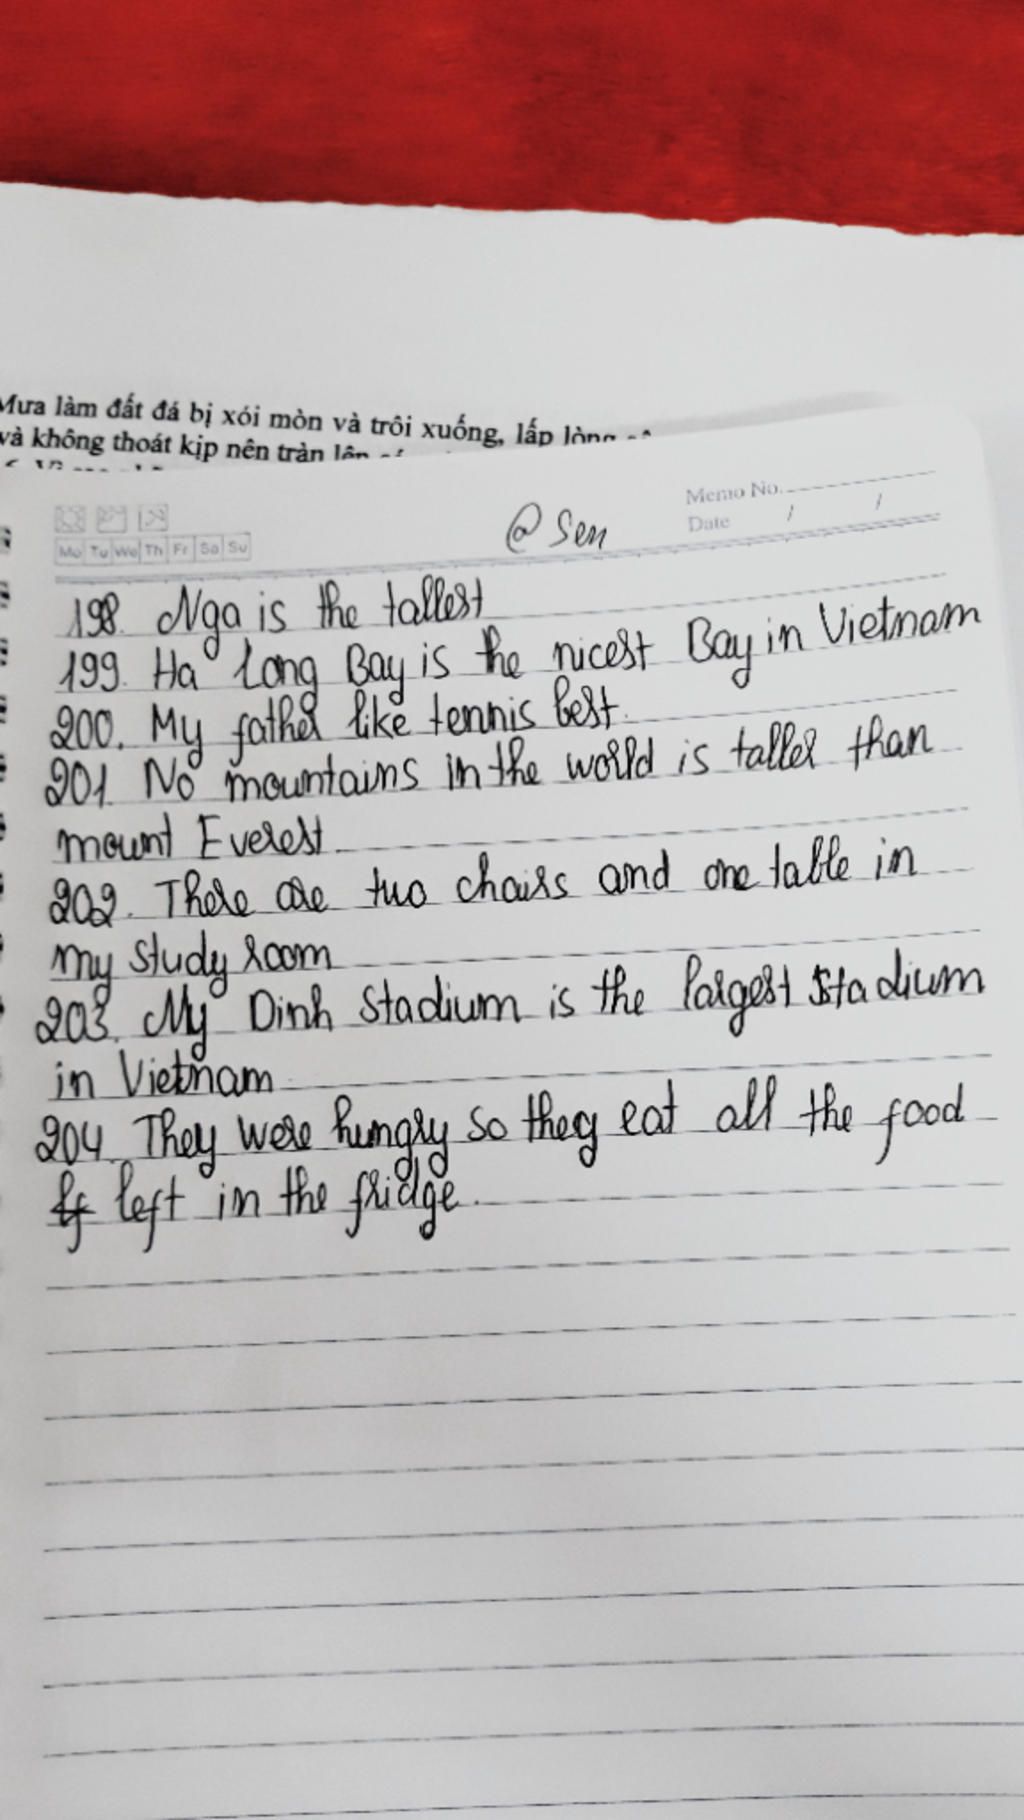 Mưa làm đất đá bị xói mòn và trôi xuống, lấp lòng
và không thoát kịp nên tràn lên
Memo No.
@ Sen
Date / /
Mo Tu We Th Fr Sa Su
198. Nga is the tallest
199. Ha Long Bay is the nicest Bay in Vietnam
200. My father like tennis best.
201. No mountains in the world is taller than
mount Everest
202. There are two chairs and one table in
my study room
203. My Dinh Stadium is the largest Stadium
in Vietnam
204. They were hungry so they eat all the food
left in the fridge.